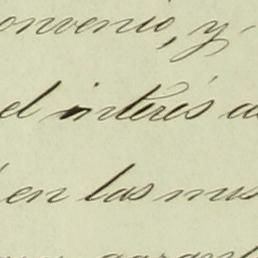 onvenio, y
el interés d
en las mis